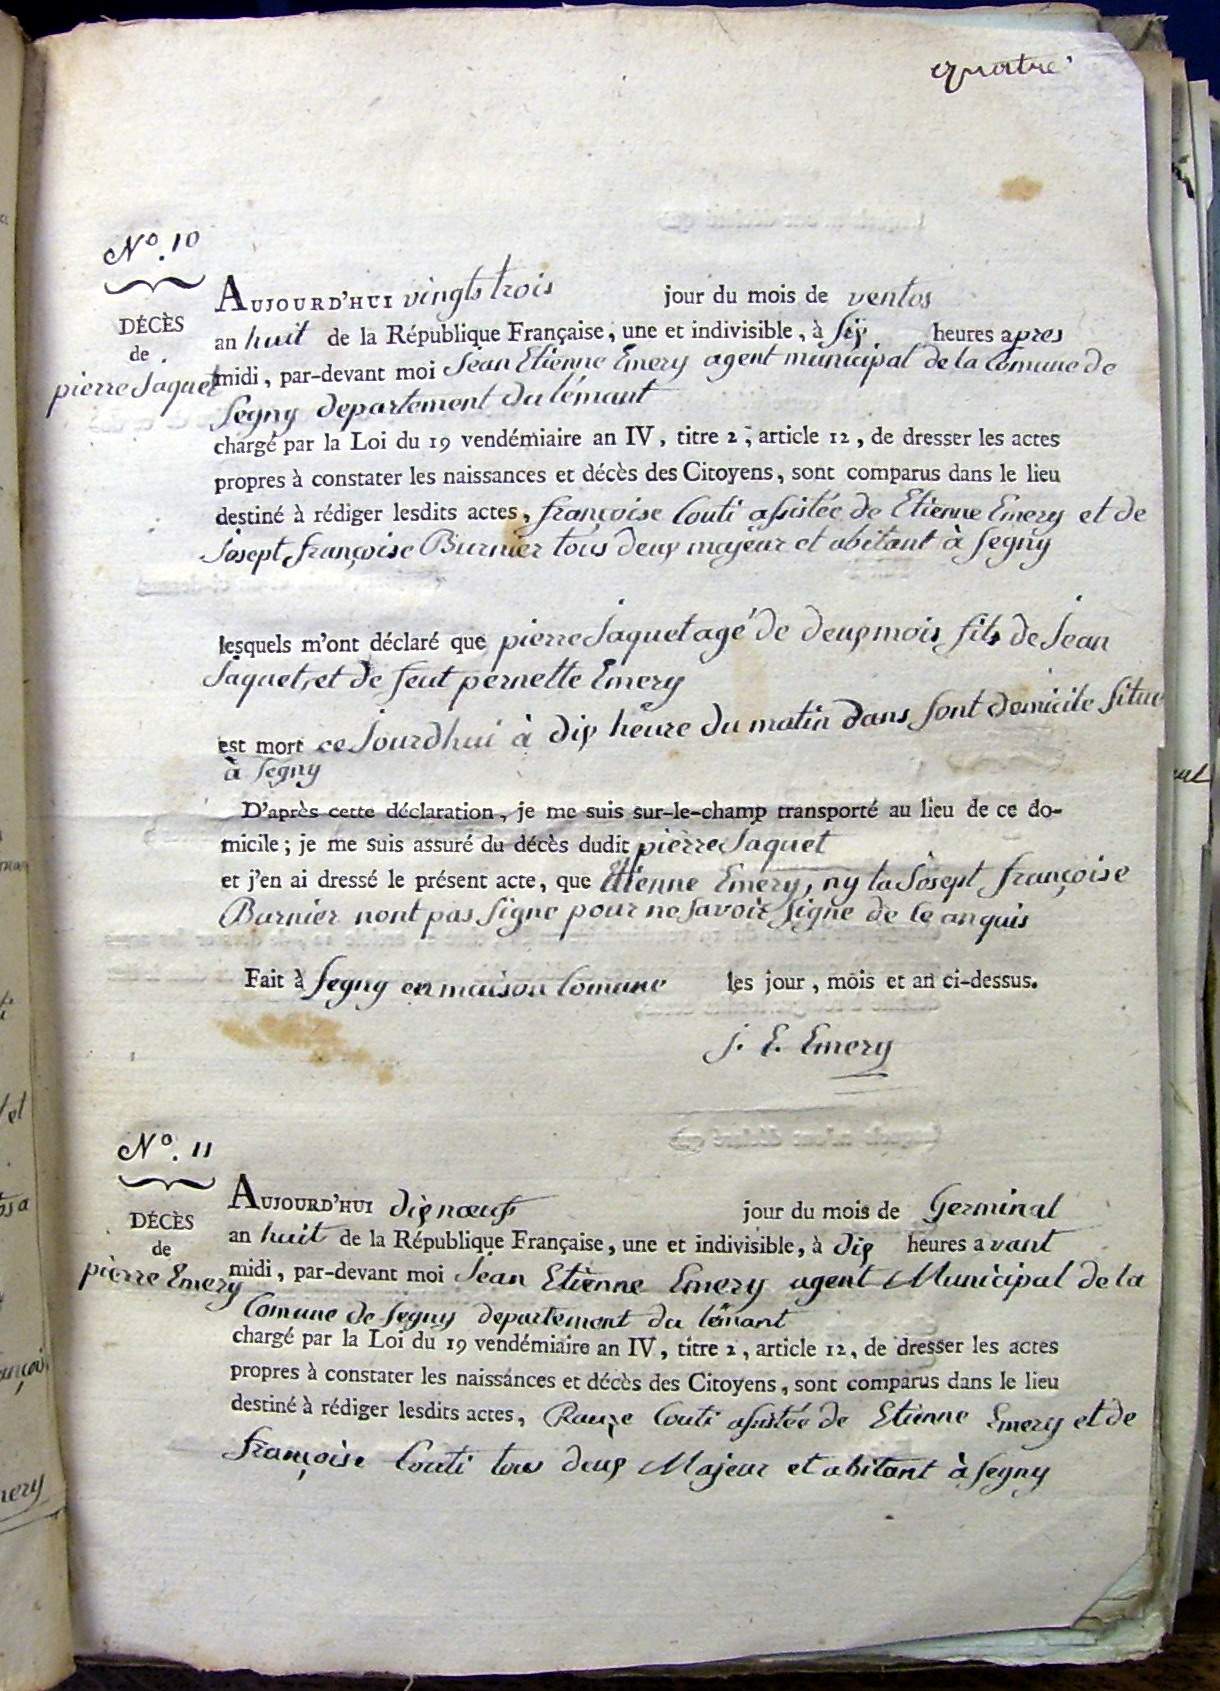 quatre
N°. 10
DÉCÈS
de
pierre Jaquet
AUJOURD'HUI vingts trois jour du mois de ventos
an huit de la République Française, une et indivisible, à six heures apres
midi, par-devant moi Jean Etienne Emery agent municipal de la Comune de
Segny departement du lémant
chargé par la Loi du 19 vendémiaire an IV, titre 2, article 12, de dresser les actes
propres à constater les naissances et décès des Citoyens, sont comparus dans le lieu
destiné à rédiger lesdits actes, françoise Couti assistée de Etienne Emery et de
Josept françoise Burnier tous deux majeur et abitant à Segny
lesquels m'ont déclaré que pierre Jaquet agé de deux mois fils de Jean
Jaquet, et de feut pernette Emery
est mort ce Jourdhui à dix heure du matin dans sont domicile situe
à Segny
D'après cette déclaration, je me suis sur-le-champ transporté au lieu de ce do-
micile; je me suis assuré du décès dudit pierre Jaquet
et j'en ai dressé le présent acte, que Etienne Emery, ny la Josept françoise
Burnier nont pas signe pour ne savoir signe de ce anquis
Fait à Segny en maison Comune les jour, mois et an ci-dessus.
J. E. Emery
N°. 11
DÉCÈS
de
pierre Emery
AUJOURD'HUI dix nœufs jour du mois de Germinal
an huit de la République Française, une et indivisible, à dix heures avant
midi, par-devant moi Jean Etienne Emery agent Municipal de la
Comune de Segny departement du lémant
chargé par la Loi du 19 vendémiaire an IV, titre 2, article 12, de dresser les actes
propres à constater les naissances et décès des Citoyens, sont comparus dans le lieu
destiné à rédiger lesdits actes, Couti assistée de Etienne Emery et de
françoise Couti tous deux Majeur et abitant à Segny